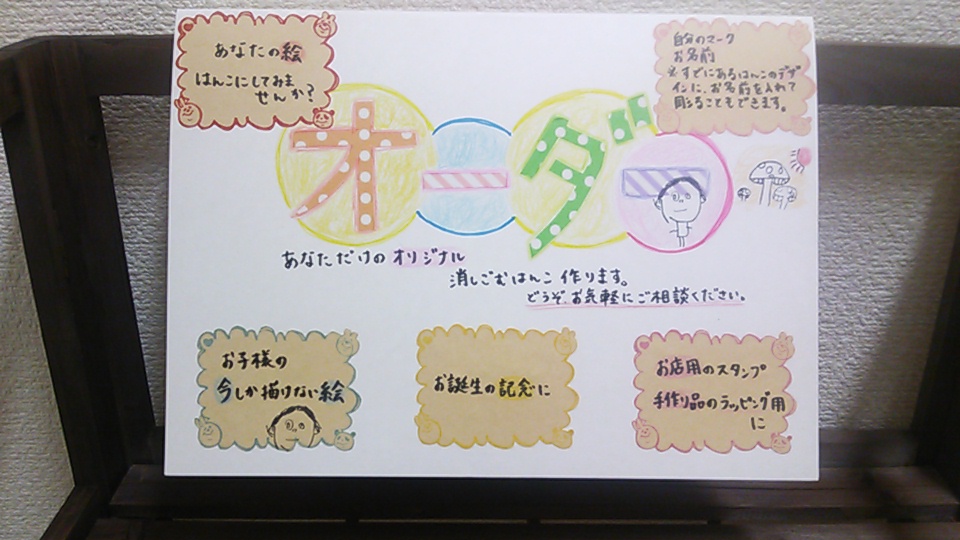 あなたの絵
はんこにしてみま
せんか?
自分のマーク
お名前
※すでにあるはんこのデザ
インに、お名前を入れて
彫ることもできます。
オーダー
あなただけのオリジナル
消しごむはんこ作ります。
どうぞ、お気軽にご相談ください。
お子様の
今しか描けない絵
お誕生の記念に
お店用のスタンプ
手作り品のラッピング用
に